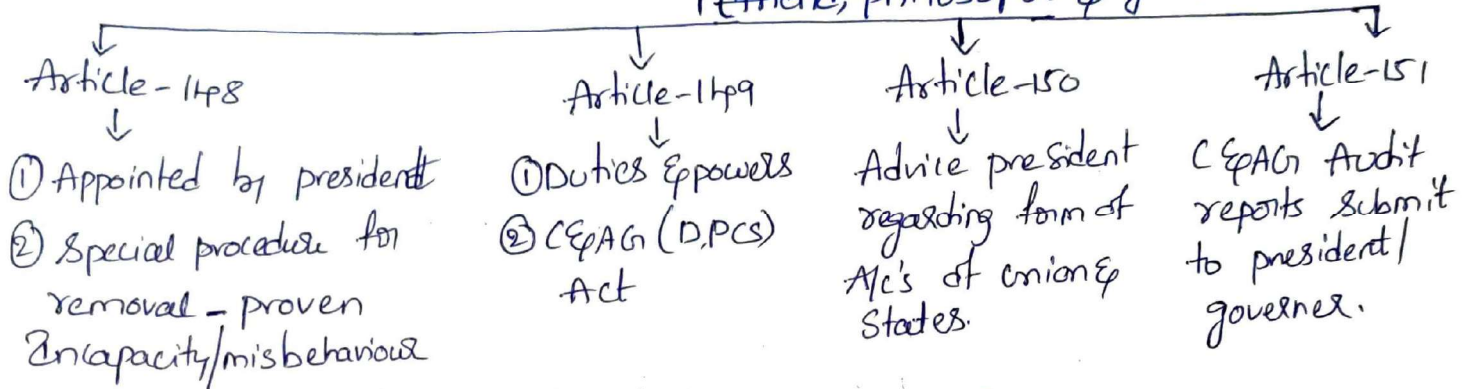 Article-148
① Appointed by president
② Special procedure for
removal - proven
Incapacity/misbehaviour
Article-149
① Duties & powers
② C&AG (D,PCS)
Act
Article-150
Advice president
regarding form of
A/c's of union &
States.
Article-151
C&AG Audit
reports Submit
to president/
governer.